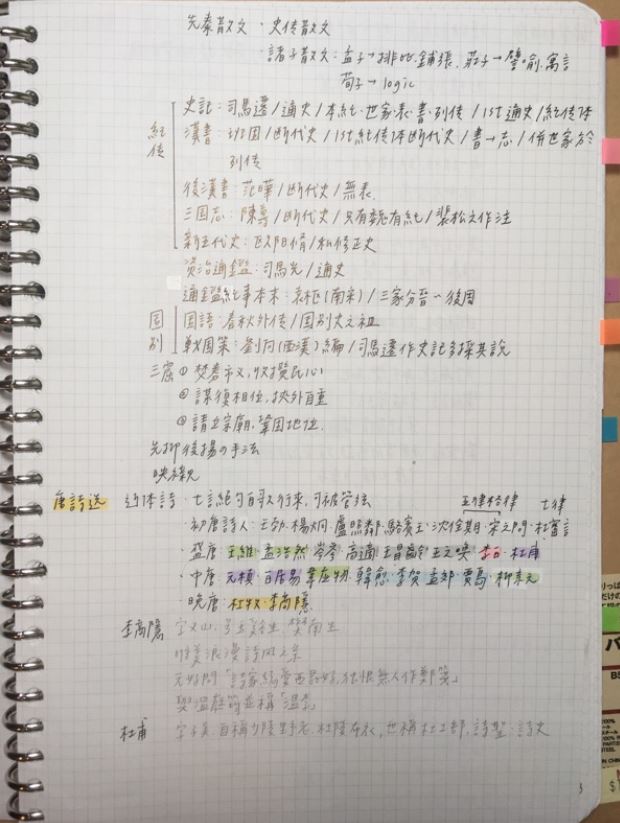 先秦散文・史传散文
・諸子散文：孟子→排比.鋪張. 莊子→譬喻.寓言
荀子→logic
紀传
史記：司馬遷/通史/本紀・世家・表・書・列传/1st通史/紀传体
漢書：班固/断代史/1st紀传体断代史/書→志/併世家於
列传
後漢書：范曄/断代史/無表
三国志：陳壽/断代史/只有魏有紀/裴松之作注
新五代史：欧阳脩/私修正史
資治通鑑：司馬光/通史
通鑑紀事本末：袁枢(南宋)/三家分晉～後周
国别
国語：春秋外传/国别史之祖
戰国策：劉向(西漢)編/司馬遷作史記多採其說
三窟 ① 焚券市义,收攬民心
② 謀復相位,挾外自重
③ 請立宗廟,鞏固地位.
先抑後揚の手法
映緞
唐詩选 近体詩・七言絕句自歌行來,可被管弦
五律 律 七律
・初唐詩人：王勃・楊炯・盧照鄰・駱賓王・沈佺期・宋之問・杜審言
・盛唐 王維・孟浩然 岑參 高適 王昌齡 王之喚 李白・杜甫
・中唐・元稹・白居易 韋应物 韓愈・李賀 孟郊 賈島・柳宗元
・晚唐・杜牧・李商隱.
李商隱 字义山.号玉谿生.樊南生
唯美浪漫詩風之宗
元好問「詩家總愛西崑好,独恨無人作鄭箋」
與溫庭筠並稱「溫李」
杜甫 字子美.自稱少陵野老.杜陵布衣,也稱杜工部,詩聖・詩史
3